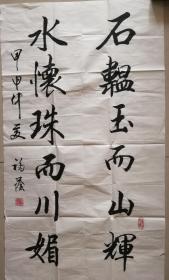 石韞玉而山輝
水懷珠而川媚
甲申年夏
福蔭